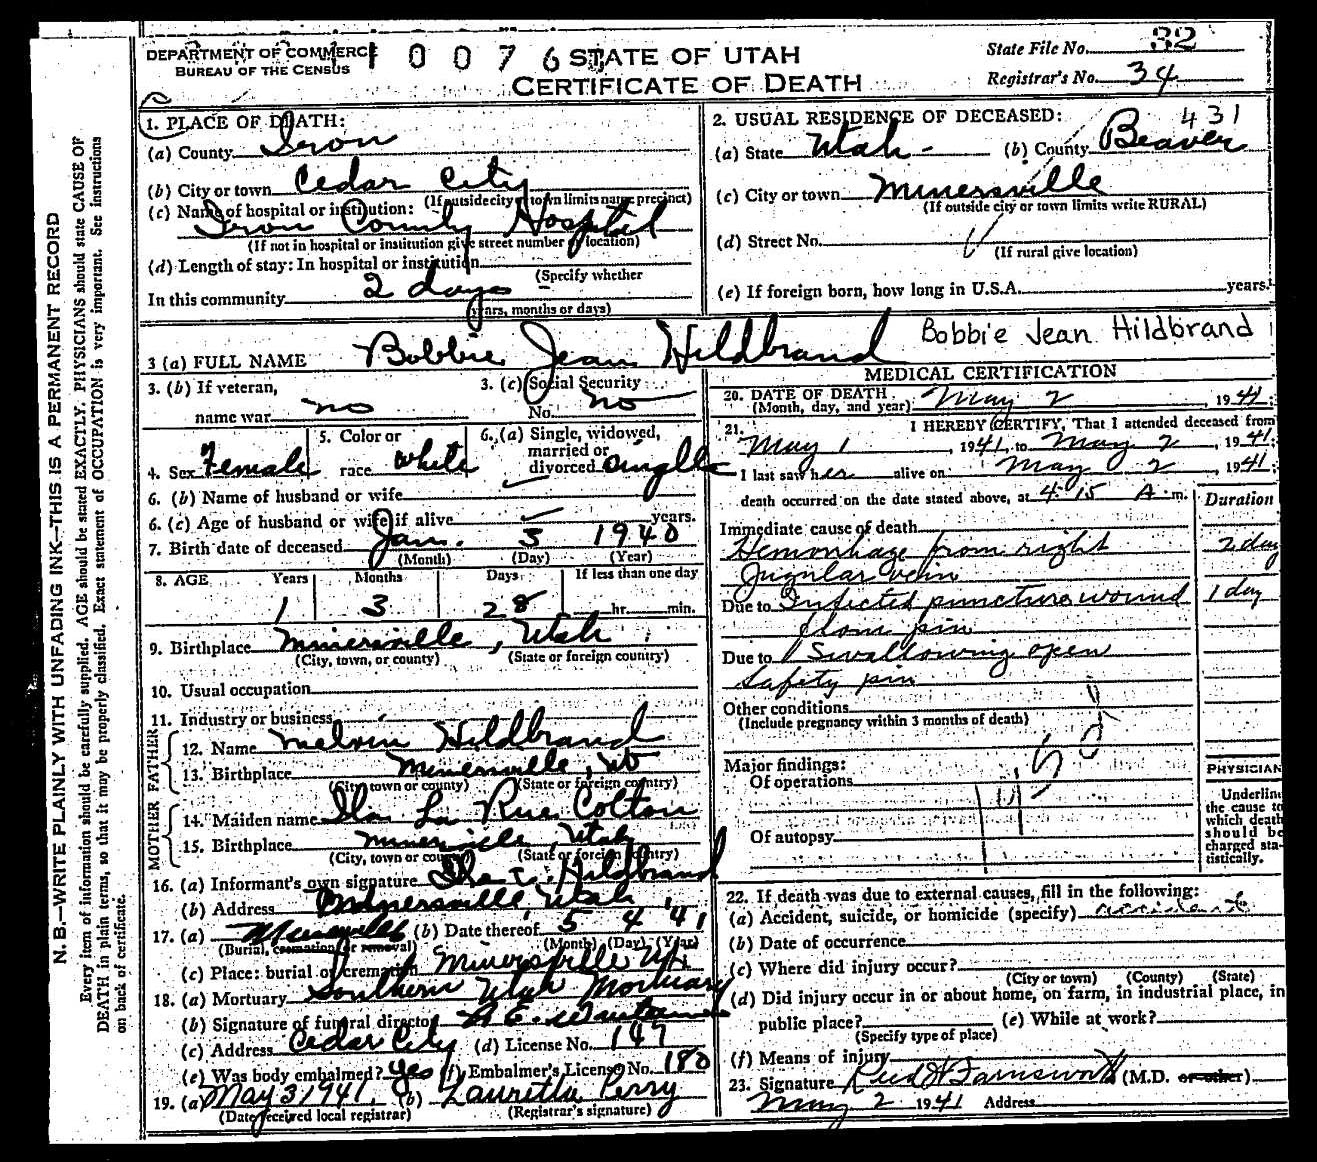 N. B.—WRITE PLAINLY WITH UNFADING INK—THIS IS A PERMANENT RECORD
Every item of information should be carefully supplied. AGE should be stated EXACTLY. PHYSICIANS should state CAUSE OF
DEATH in plain terms, so that it may be properly classified. Exact statement of OCCUPATION is very important. See instructions
on back of certificate.
DEPARTMENT OF COMMERCE
BUREAU OF THE CENSUS
0 0 7 6
STATE OF UTAH
CERTIFICATE OF DEATH
State File No. 32
Registrar's No. 34
1. PLACE OF DEATH:
(a) County Iron
(b) City or town Cedar City
(If outside city or town limits name precinct)
(c) Name of hospital or institution:
Iron County Hospital
(If not in hospital or institution give street number or location)
(d) Length of stay: In hospital or institution
(Specify whether
In this community 2 days
years, months or days)
2. USUAL RESIDENCE OF DECEASED: 431
(a) State Utah - (b) County Beaver
(c) City or town Minersville
(If outside city or town limits write RURAL)
(d) Street No.
(If rural give location)
(e) If foreign born, how long in U.S.A. years.
3 (a) FULL NAME Bobbie Jean Hildbrand Bobbie Jean Hildbrand
3. (b) If veteran,
name war no
3. (c) Social Security
No. no
4. Sex Female
5. Color or
race white
6. (a) Single, widowed,
married or
divorced single
6. (b) Name of husband or wife
6. (c) Age of husband or wife if alive years.
7. Birth date of deceased Jan. 3 1940
(Month) (Day) (Year)
8. AGE Years Months Days If less than one day
1 3 28 hr. min.
9. Birthplace Minersville, Utah
(City, town, or county) (State or foreign country)
10. Usual occupation
11. Industry or business
FATHER
12. Name Melvin Hildbrand
13. Birthplace Minersville, Ut
(City town or county) (State or foreign country)
MOTHER
14. Maiden name Ila La Rue Colton
15. Birthplace Minersville, Utah
(City, town or county) (State or foreign country)
16. (a) Informant's own signature Hildbrand
(b) Address Minersville, Utah
17. (a) Minersville (b) Date thereof 5 4 '41
(Burial, cremation or removal) (Month) (Day) (Year)
(c) Place: burial or cremation Minersville Ut.
18. (a) Mortuary Southern Utah Mortuary
(b) Signature of funeral director
(c) Address Cedar City (d) License No. 147
(e) Was body embalmed? yes (f) Embalmer's License No. 180
19. (a) May 3 1941. (b) Lauretta Perry
(Date received local registrar) (Registrar's signature)
MEDICAL CERTIFICATION
20. DATE OF DEATH
(Month, day, and year) May 2, 1941;
21. I HEREBY CERTIFY, That I attended deceased from
May 1, 1941, to May 2, 1941;
I last saw her alive on May 2, 1941;
death occurred on the date stated above, at 4:15 A. m.
Duration
Immediate cause of death
Hemorrhage from right 2 day
Jugular vein
Due to Infected puncture wound 1 day
from pin
Due to Swallowing open
Safety pin
Other conditions
(Include pregnancy within 3 months of death)
Major findings:
Of operations
Of autopsy
PHYSICIAN
Underline
the cause to
which death
should be
charged sta-
tistically.
22. If death was due to external causes, fill in the following:
(a) Accident, suicide, or homicide (specify) accident
(b) Date of occurrence
(c) Where did injury occur?
(City or town) (County) (State)
(d) Did injury occur in or about home, on farm, in industrial place, in
public place? (e) While at work?
(Specify type of place)
(f) Means of injury
23. Signature Reed W Farnsworth (M.D. or other)
May 2 1941 Address